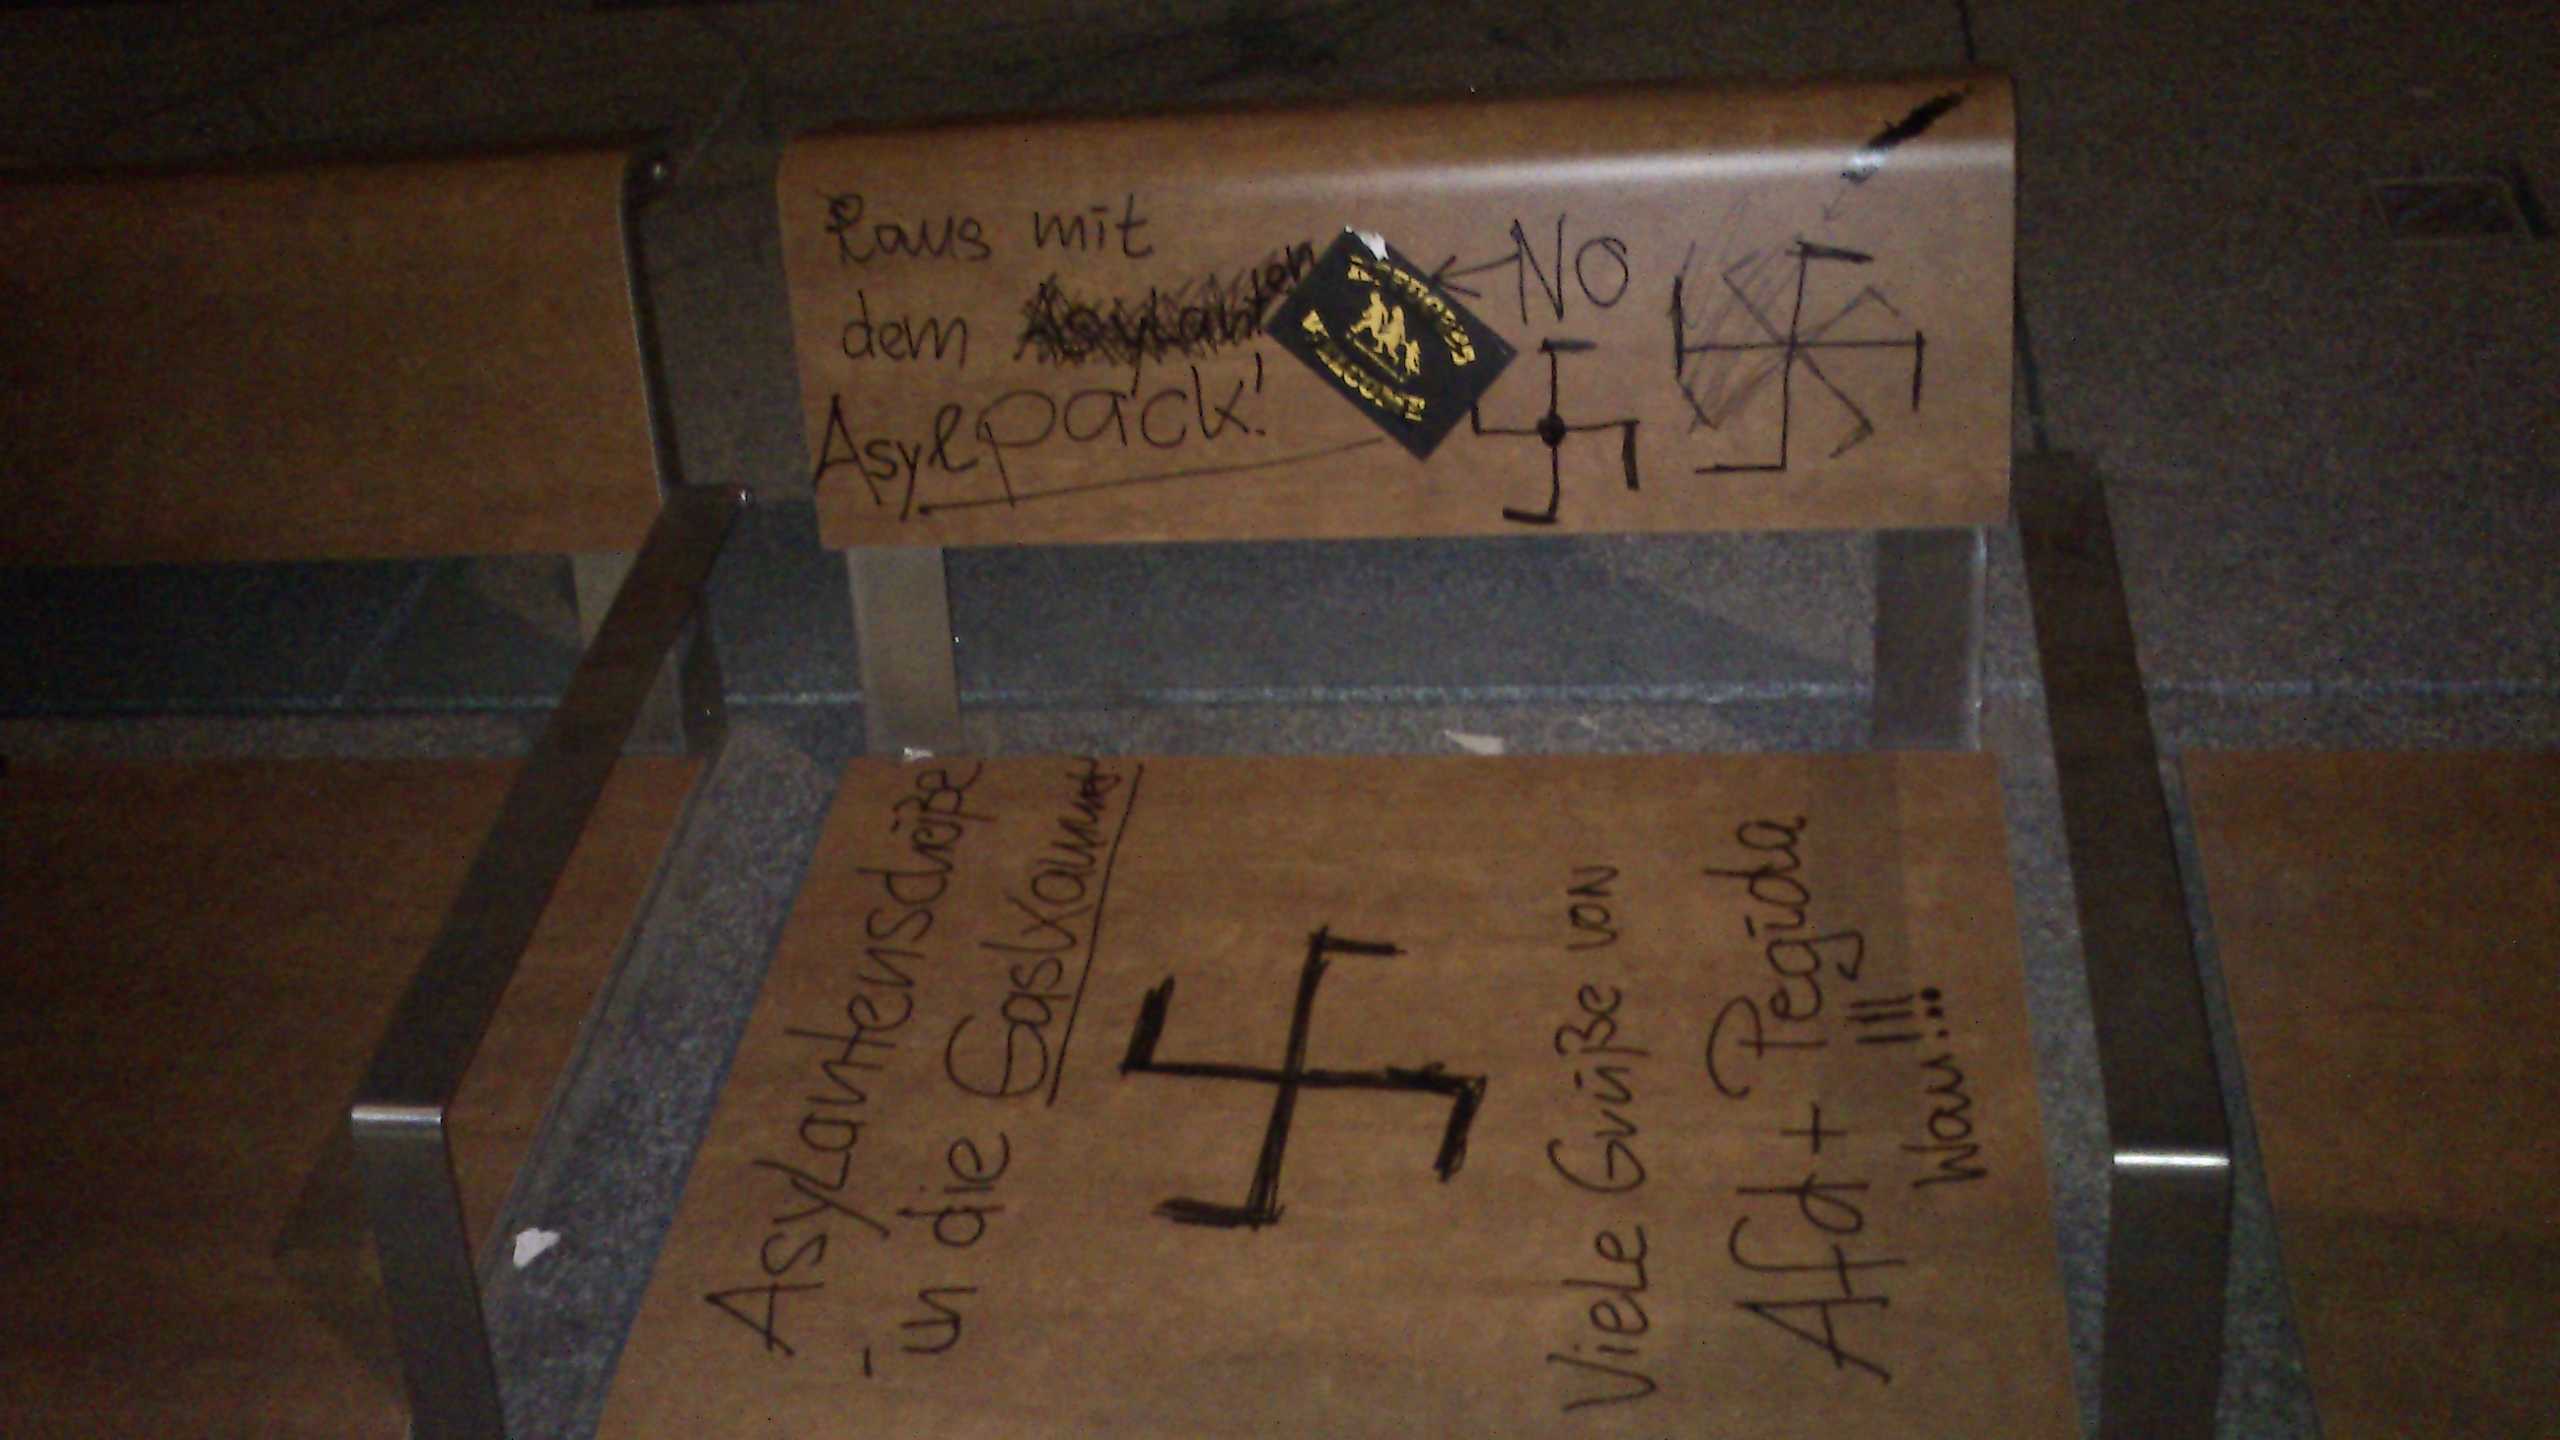 Raus mit
dem Asylanten
Asylpack!
REFUGEES
WELCOME
NO
Asylantenscheiße
in die Gaskammer
Viele Grüße von
Afd + Pegida
!!!